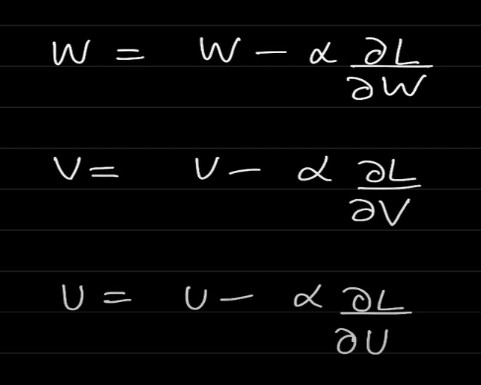 W = W - α ∂L/∂W
V = V - α ∂L/∂V
U = U - α ∂L/∂U